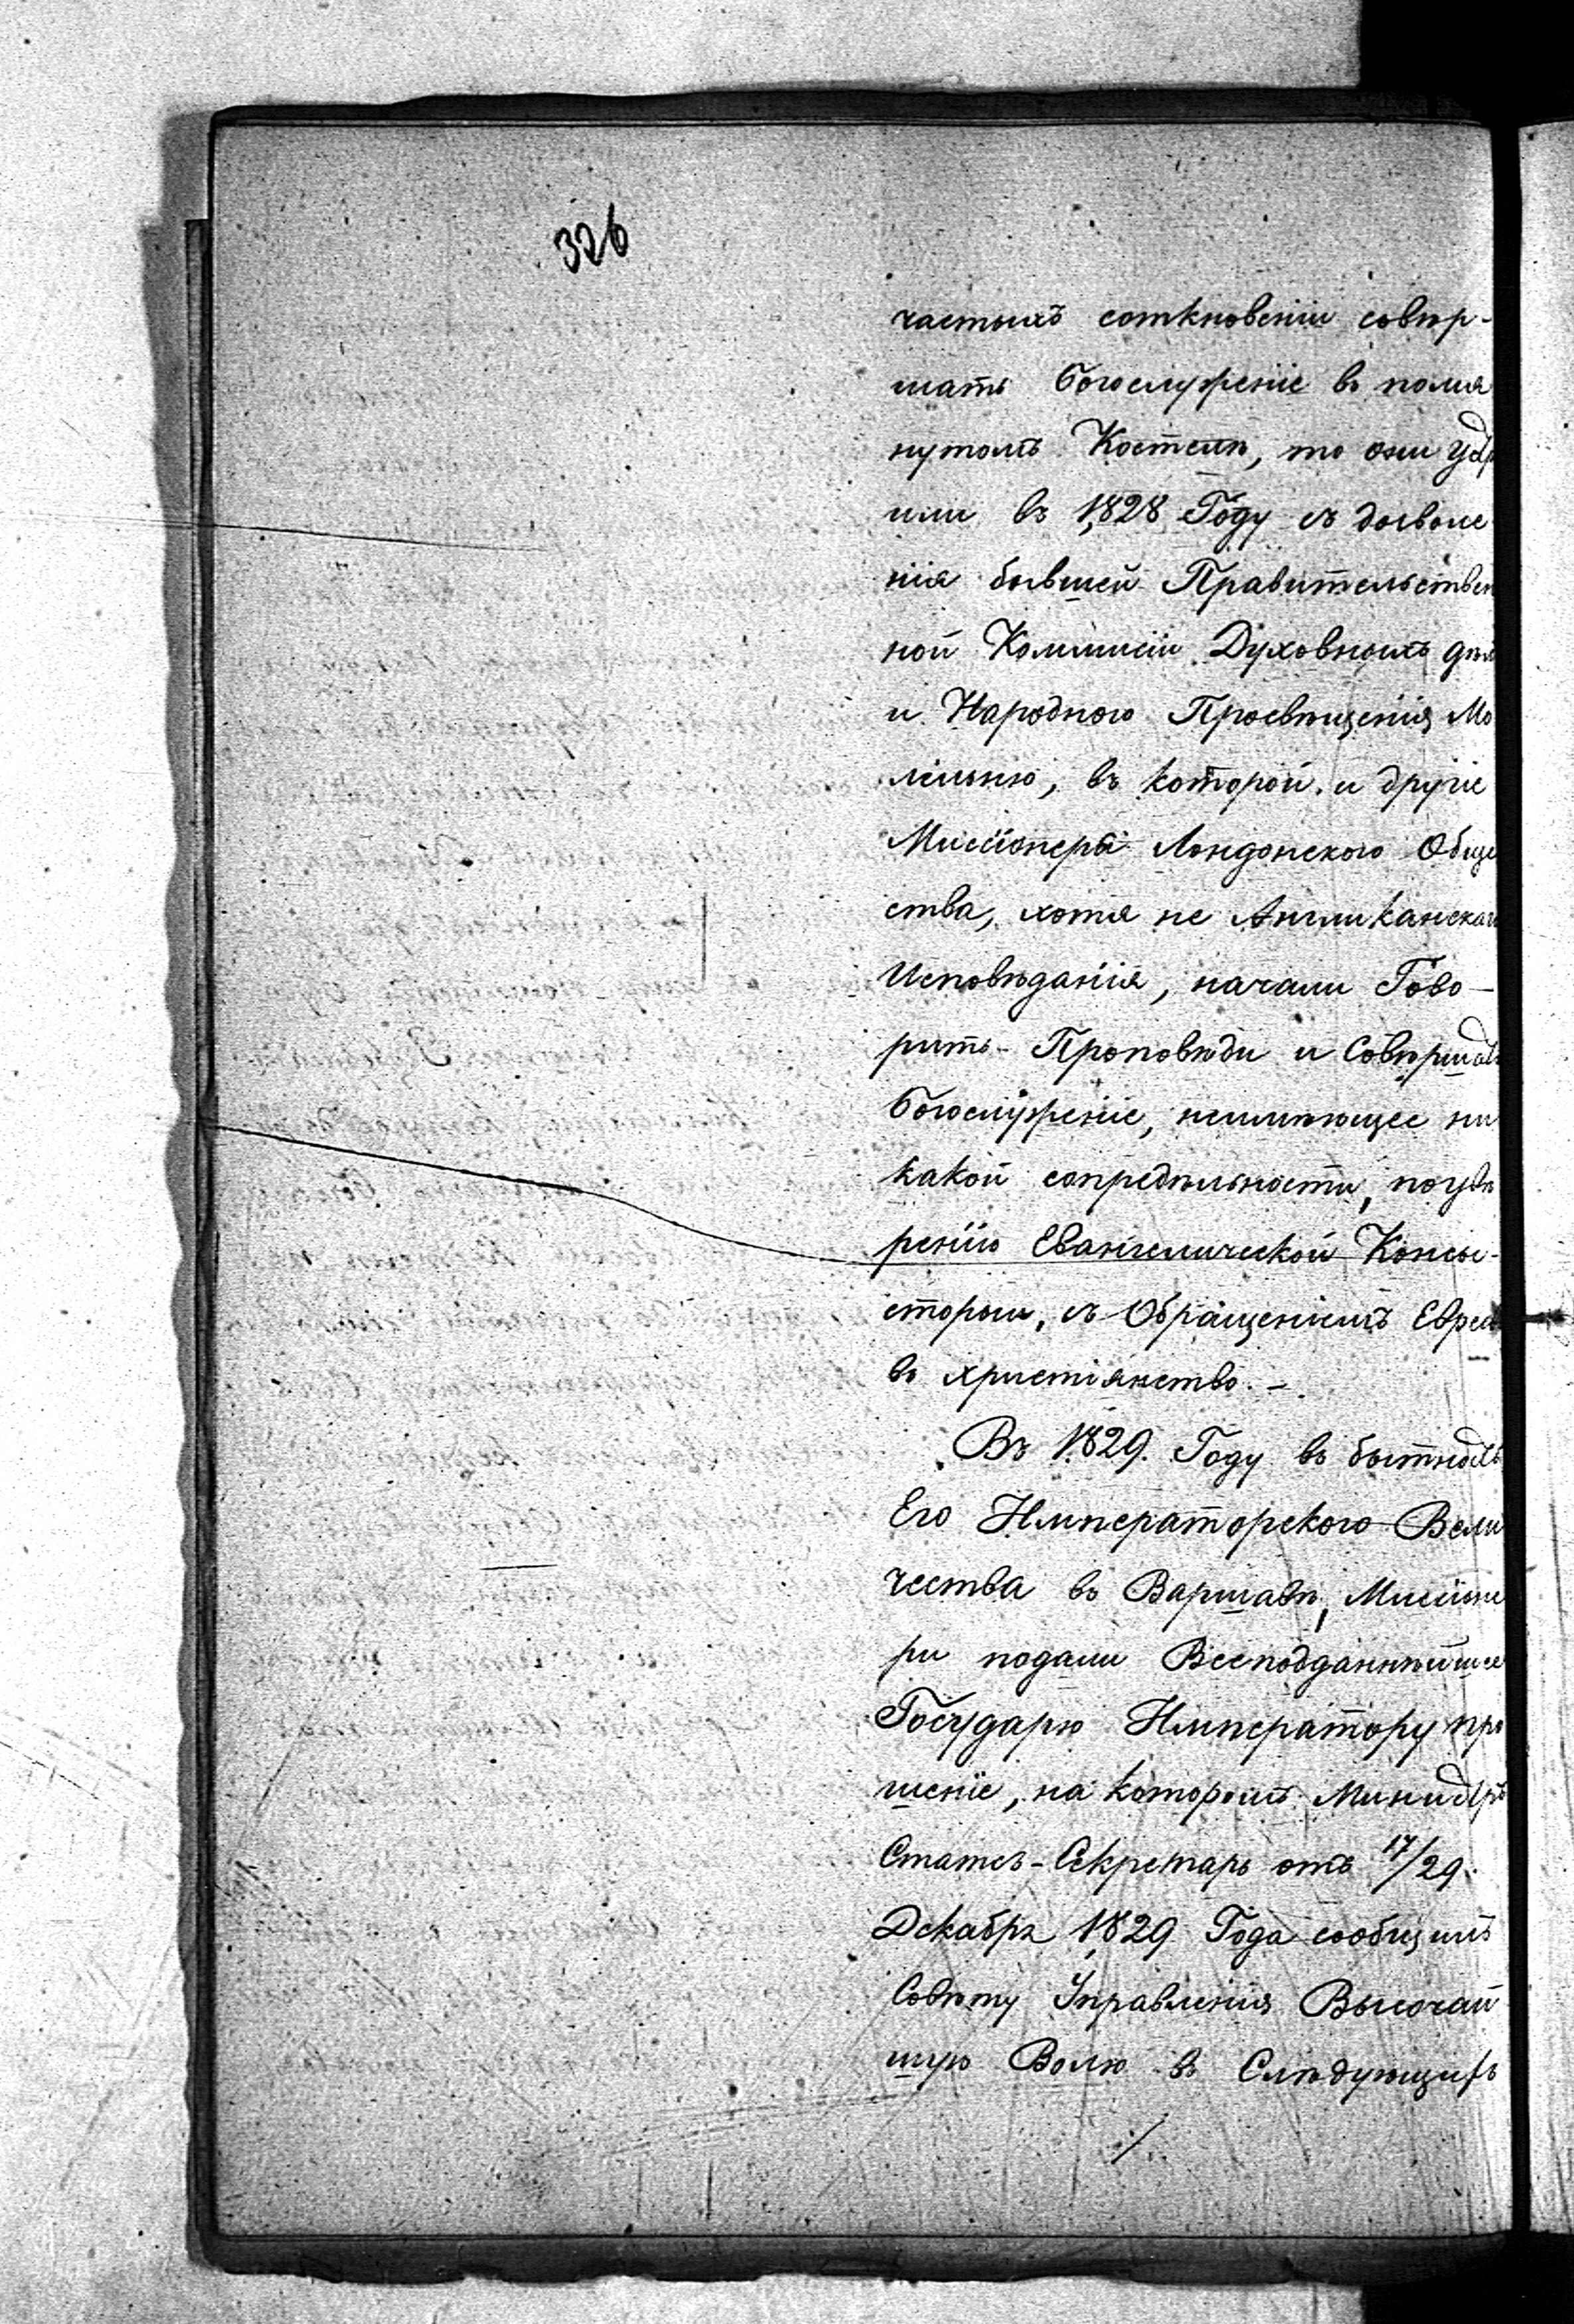 326
частыхъ соткновеніи совѣр-
шать богослуженіе въ помя
нутомъ Костелѣ, то они
или въ 1828 Году съ дозволе
нія бывшей Правительствен
ной Коммисіи Духовныхъ дѣл
и Народного Просвѣщенія Мо
лельню, въ которой и другіе
Миссіонеры Лондонского Обще
ства, хотя не Англиканскаго
Исповѣданія, начали Гово-
рить Проповѣди и Совѣршать
богослуженіе, неимѣющее ни
какой сопредѣльности, по увѣ
ренію Евангелической Консы-
сторыи, съ Обращеніемъ Евреев
въ христіянство. -
Въ 1829. Году въ бытность
Его Императорского Вели
чества въ Варшавѣ, Миссіоне
ри подали Всеподданнѣйшее
Государю Императору про
шеніе, на которомъ Министръ
Статсъ-Секретарь отъ 17/29.
Декабря 1829 Года сообщилъ
Совѣту Управленія Высочай
шую Волю въ Слѣдующихъ
./.